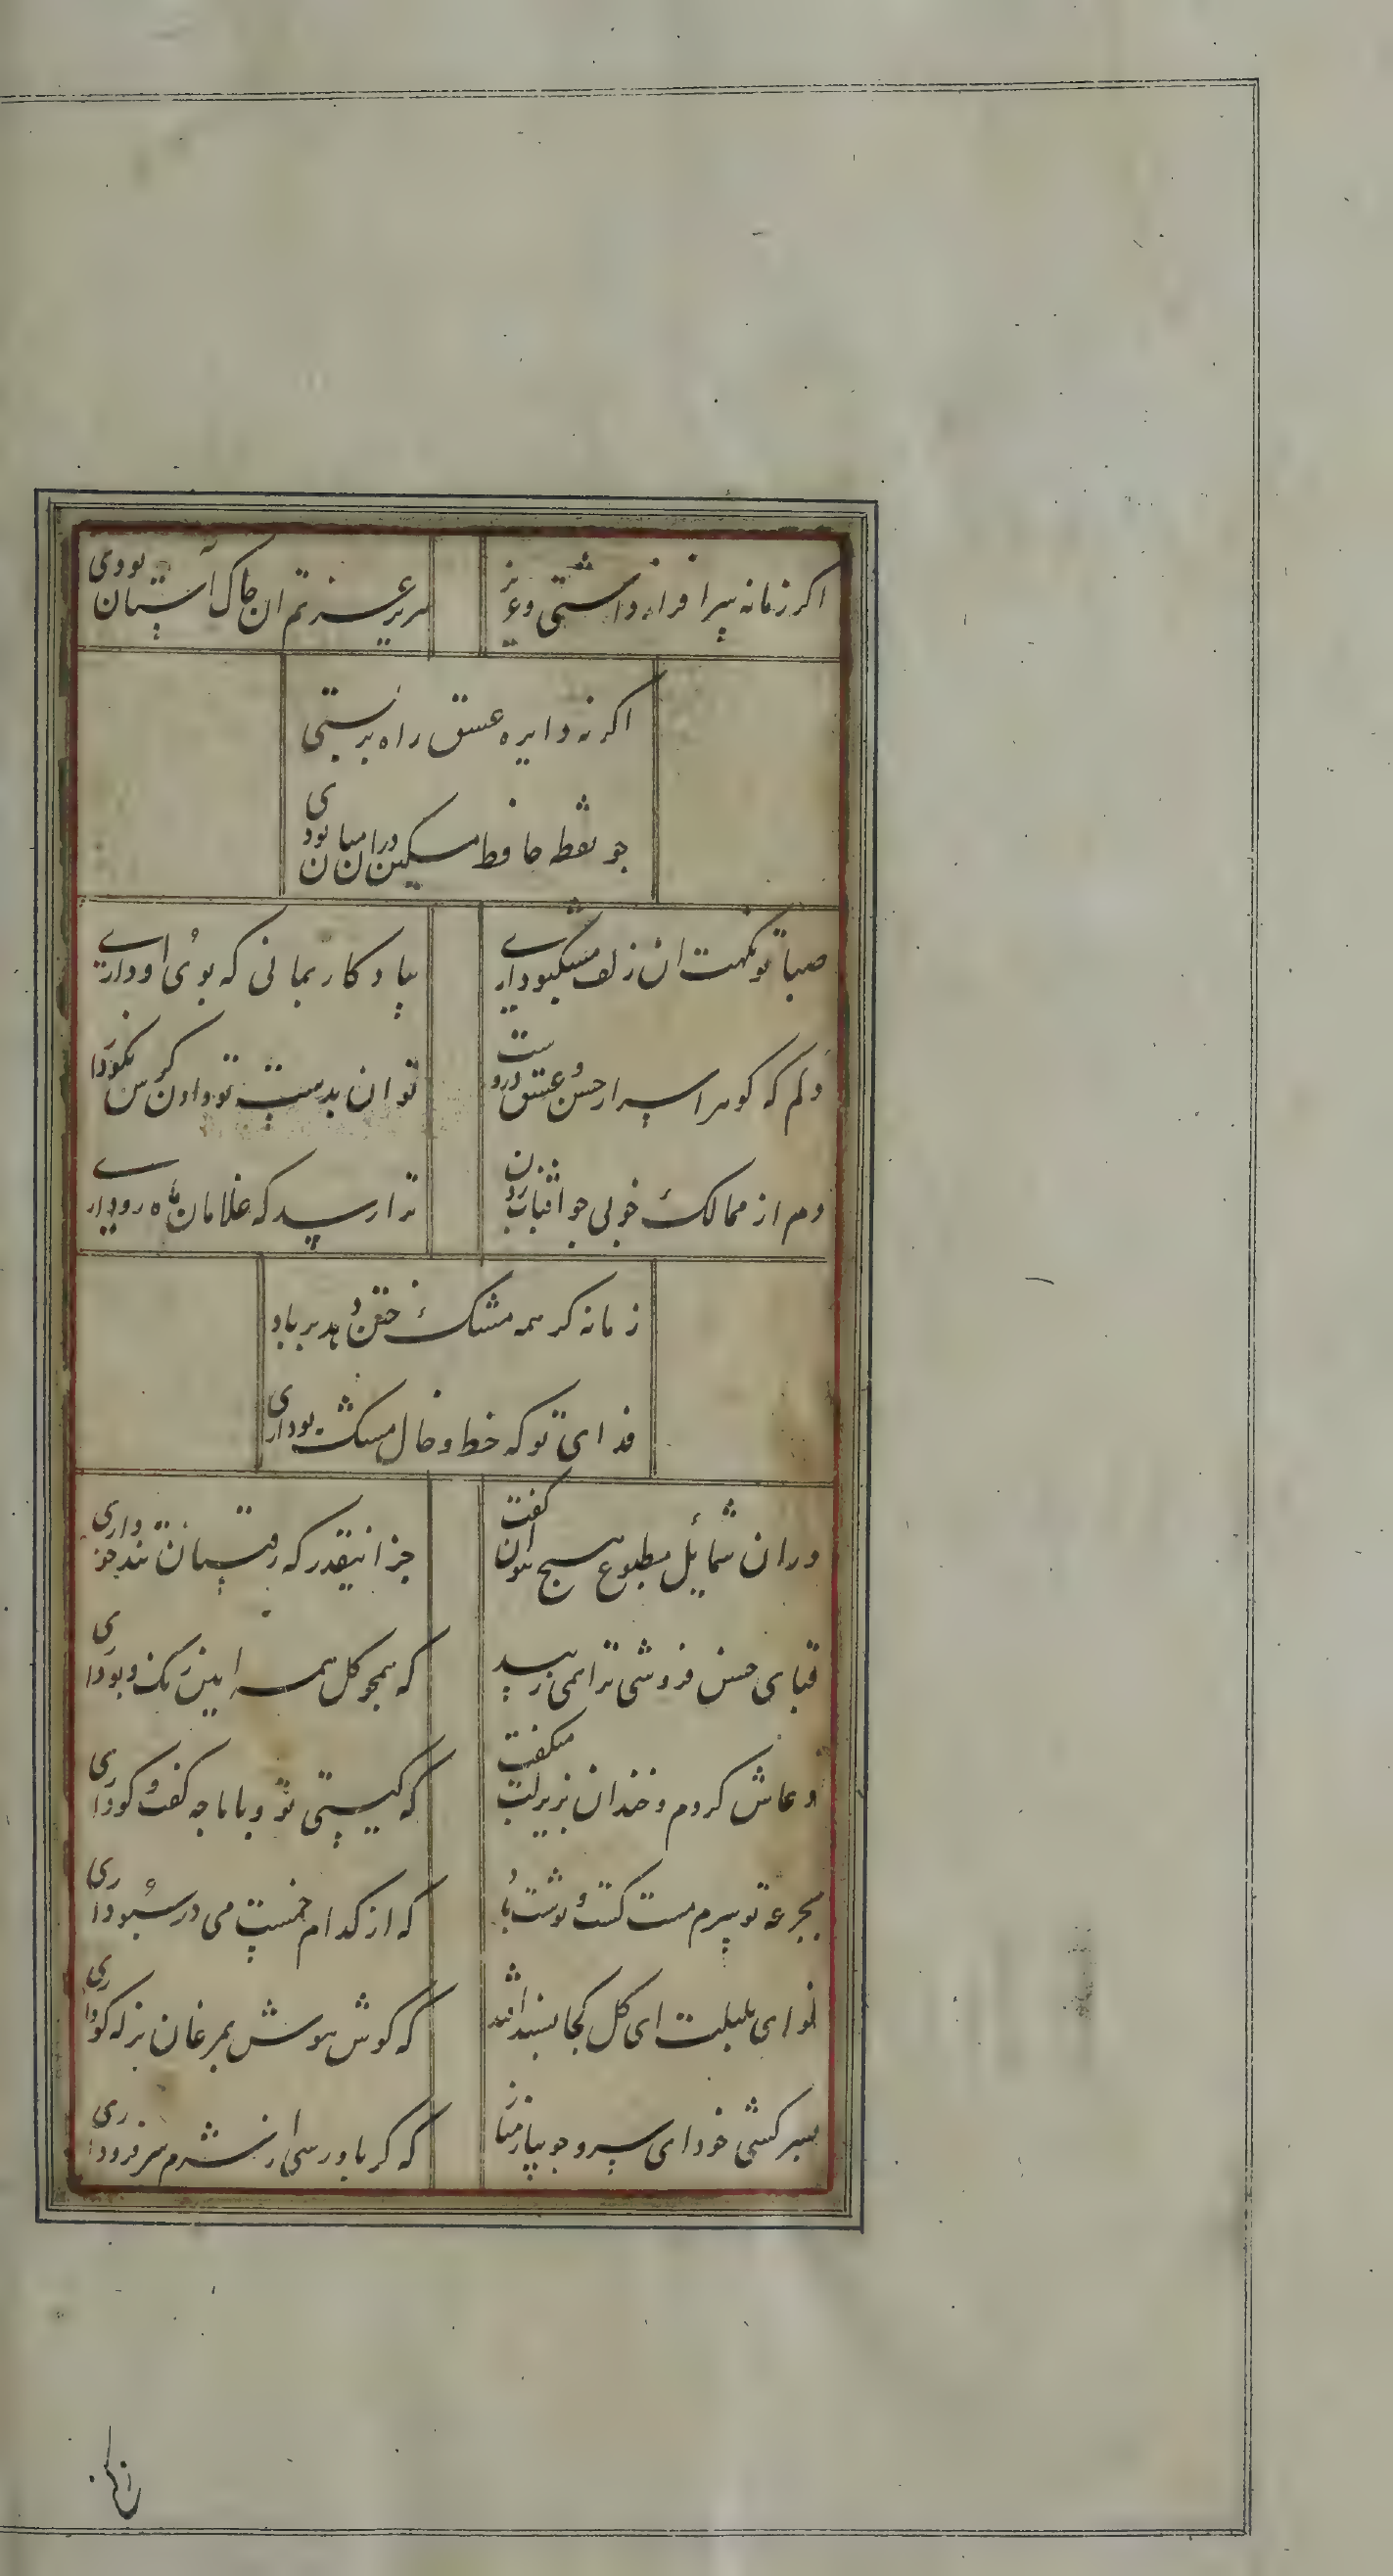 اکر زمانه سرافرازداشتی و عزیز
سریر عزتم ان خاک آستان بودی
اکر نه دایره عشق راه بربستی
جو نقطه حافظ مسکین دران میان بودی
صبا تو نکهت ان زلف مشکبو داری
بیادکار بمانی که بوی او داری
دلم که کوهر اسرار حسن عشق دروست
توان بدست تو دادن کرس نکو دا
دم از ممالک خوبی جو افتاب زدن
ترا رسد که غلامان ماه رو داری
زمانه کر همه مشک ختن دهد بر باد
فدای تو که خط و خال مشک بو داری
دران شمایل مطبوع هیج نتوان کفت
جز اینقدر که رقیبان تندخو داری
قبای حسن فروشی ترا همی زیبد
که همجو کل همه ایین رنک و بو داری
دعاش کردم و خندان بزیر لب میکفت
که کیستی تو و با ما جه کفت و کو داری
بجرعه تو سرم مست کشت و نوشت با
که از کدام خمست می در سبو داری
نوای بلبلت ای کل کجا پسند افتد
که کوش هوش بمرغان هرزه کو داری
بسرکشی خود ای سرو جویبار مناز
که کر باو رسی از شرم سر فرو داری